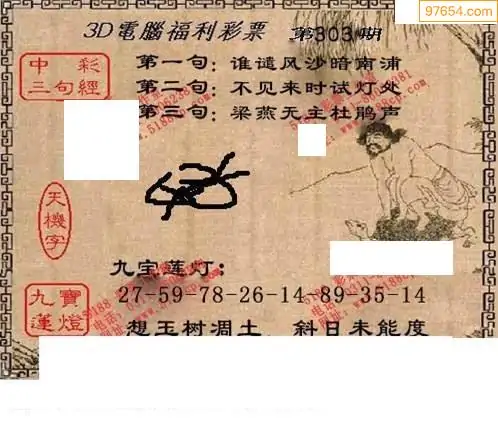 97654.com
3D電腦福利彩票 第303期
中彩
三句經
第一句：谁谴风沙暗南浦
第二句：不见来时试灯处
第三句：梁燕无主杜鹃声
天機字
九宝莲灯：
九寶
蓮燈
27-59-78-26-14-89-35-14
想玉树凋土，斜日未能度